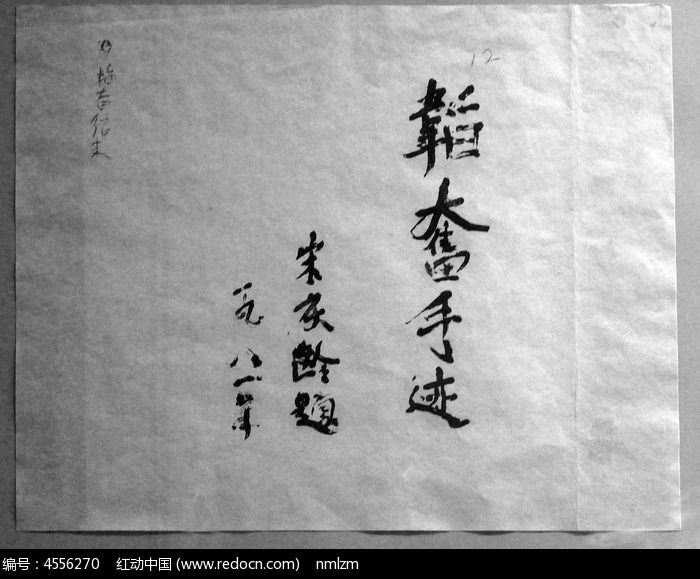 12
韜奮手迹
宋庆齡題
一九八一年
编号：4556270 红动中国 (www.redocn.com) nmlzm